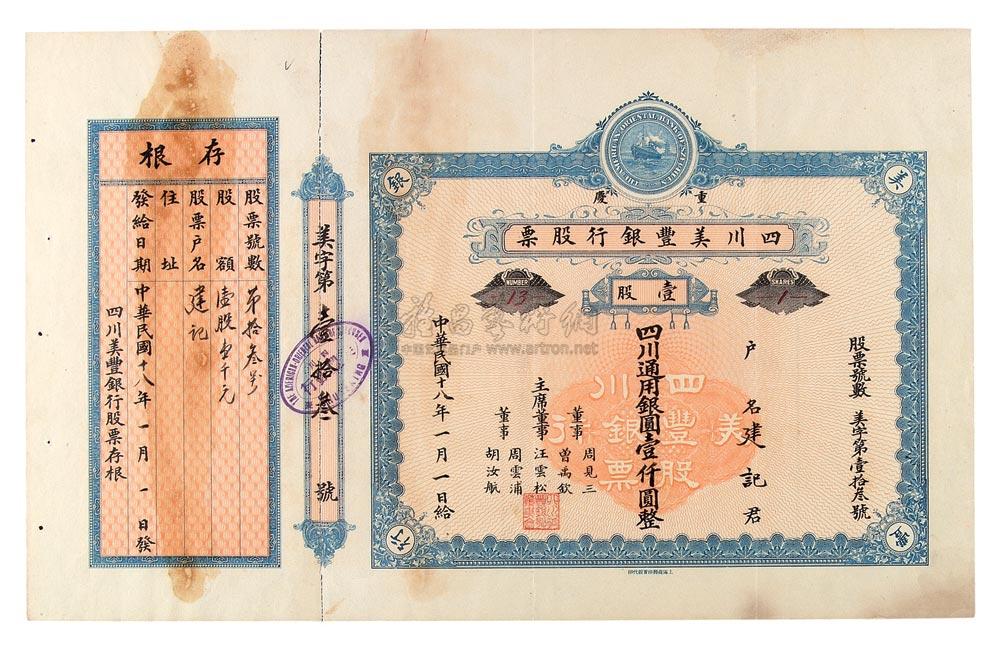 THE AMERICAN ORIENTAL BANK OF SZECHUEN
美豐銀行
重慶
四川美豐銀行股票
NUMBER
13
壹股
SHARES
1
股票號數 美字第壹拾叁號
戶名建記君
四川通用銀圓壹仟圓整
四川
美豐銀行
股票
董事 周見三
曾禹欽
主席董事 汪雲松
董事 周雲浦
胡汝航
中華民國十八年一月一日給
美字第壹拾叁號
存根
股票號數 第拾叁號
股額 壹股壹千元
股票戶名 建記
住址
發給日期 中華民國十八年一月一日發
四川美豐銀行股票存根
www.artron.net